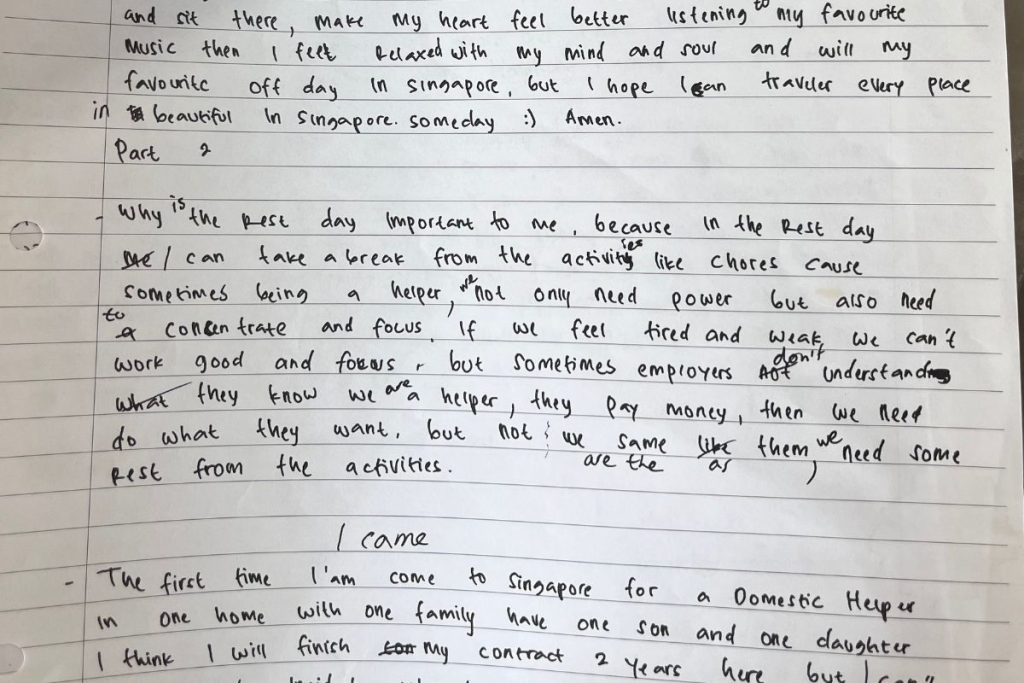 and sit there, make my heart feel better listening to my favourite
music then I feel Relaxed with my mind and soul and will my
favourite off day In singapore, but I hope I can traveler every place
in beautiful In singapore. someday :) Amen.
Part 2
- Why is the Rest day Important to me, because In the Rest day
me I can take a break from the activities like chores cause
sometimes being a helper, we not only need power but also need
to concentrate and focus. If we feel tired and weak, we can't
work good and focus, but sometimes employers not don't understand
what they know we are a helper, they pay money, then we need
do what they want, but not we same like them, we need some
are the as
Rest from the activities.
I came
- The first time I'am come to Singapore for a Domestic Helper
In one home with one family have one son and one daughter
I think I will finish my contract 2 years here but I can't